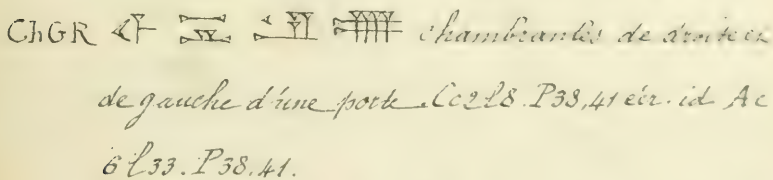 ChGR chambranles de droite et
de gauche d'une porte. Cc2l8. P38,41 écr. id Ac
6 l33. P38.41.